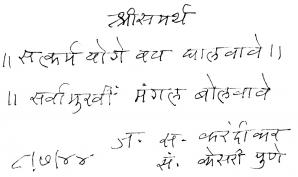 श्रीसमर्थ
।। सत्कर्म योगे वय घालवावे ।।
।। सर्वामुखीं मंगल बोलवावे
ज. स. करंदीकर
८/७/४४ सं. केसरी पुणे